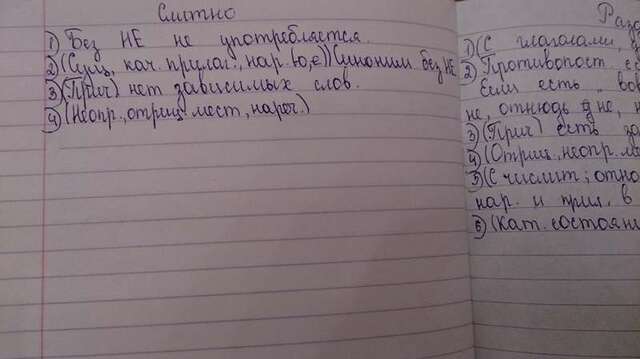 Слитно
1) Без НЕ не употребляется.
2) (Сущ., кач. прилаг., нар. -о,е)) (синоним без НЕ
3) (Прич) нет зависимых слов.
4) (Неопр., отриц. мест, нареч.)
Разд
1) (С глаголами,
2) Противопост
Если есть "
не, отнюдь не, н
3) (Прич) есть за
4) (Отриц., неопр. ме
5) (С числит; отно
нар. и прил. в
6) (кат. состоян